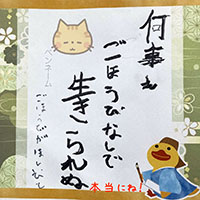 何事も
ごほうびなしで
生きられぬ
ペンネーム
ごほうびがほしいです
本当にね!